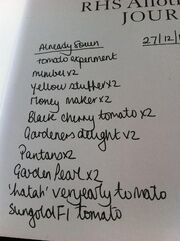 RHS Allot
JOUR
Already Sown
27/12/1
tomato experiment
member x2
Yellow stuffer x2
Money maker x2
Black cherry tomato x2
Gardeners delight x2
Pantano x2
Garden Pearl x2
'hatah' very early tomato
Sungold F1 tomato